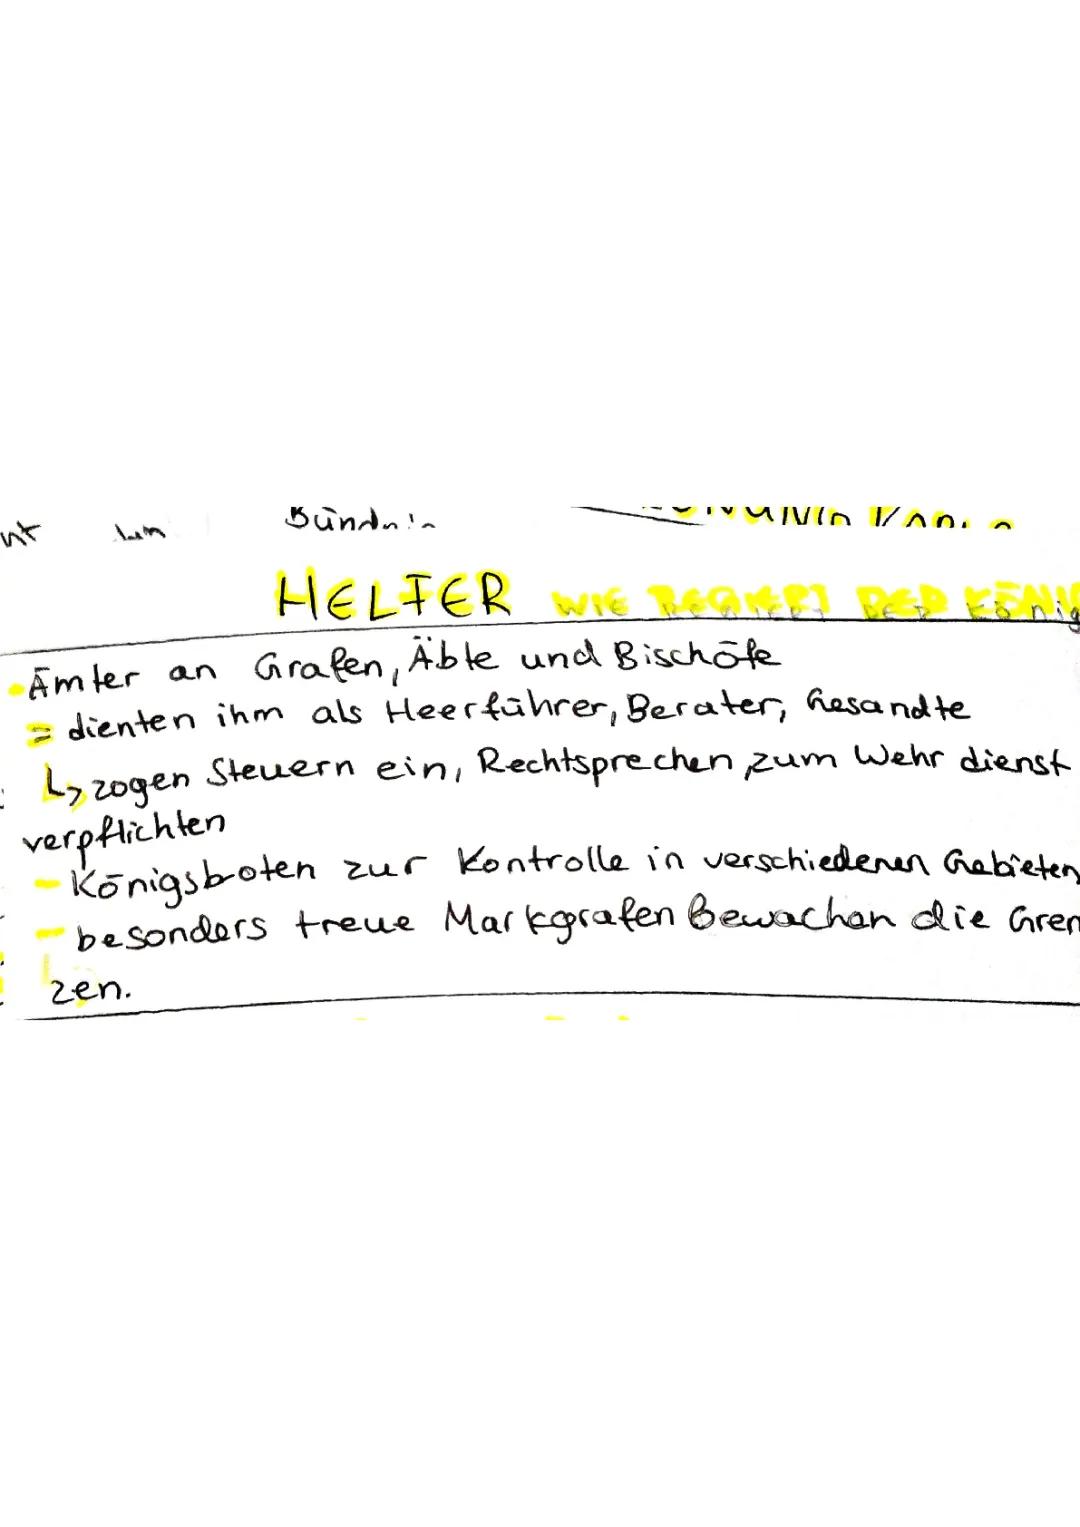 HELFER WIE REGIERT DER König
Ämter an Grafen, Äbte und Bischöfe
= dienten ihm als Heerführer, Berater, Gesandte
↳ zogen Steuern ein, Rechtsprechen, zum Wehrdienst
verpflichten
- Königsboten zur Kontrolle in verschiedenen Gebieten
- besonders treue Markgrafen Bewachen die Gren
zen.